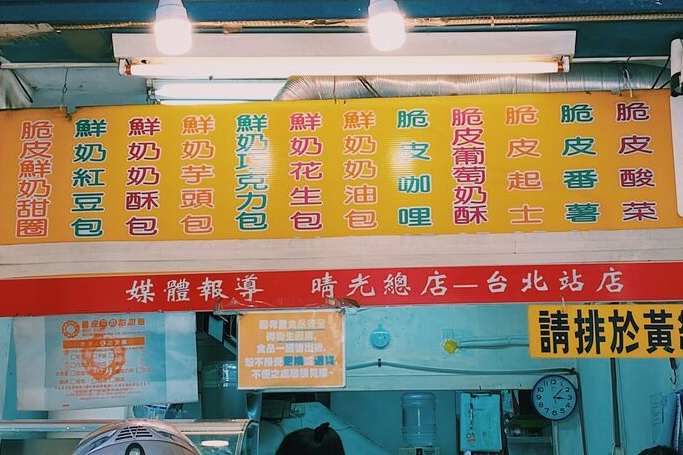 脆皮鮮奶甜圈
鮮奶紅豆包
鮮奶奶酥包
鮮奶芋頭包
鮮奶巧克力包
鮮奶花生包
鮮奶奶油包
脆皮咖哩
脆皮葡萄奶酥
脆皮起士
脆皮番薯
脆皮酸菜
媒體報導 晴光總店—台北站店
請排於黃